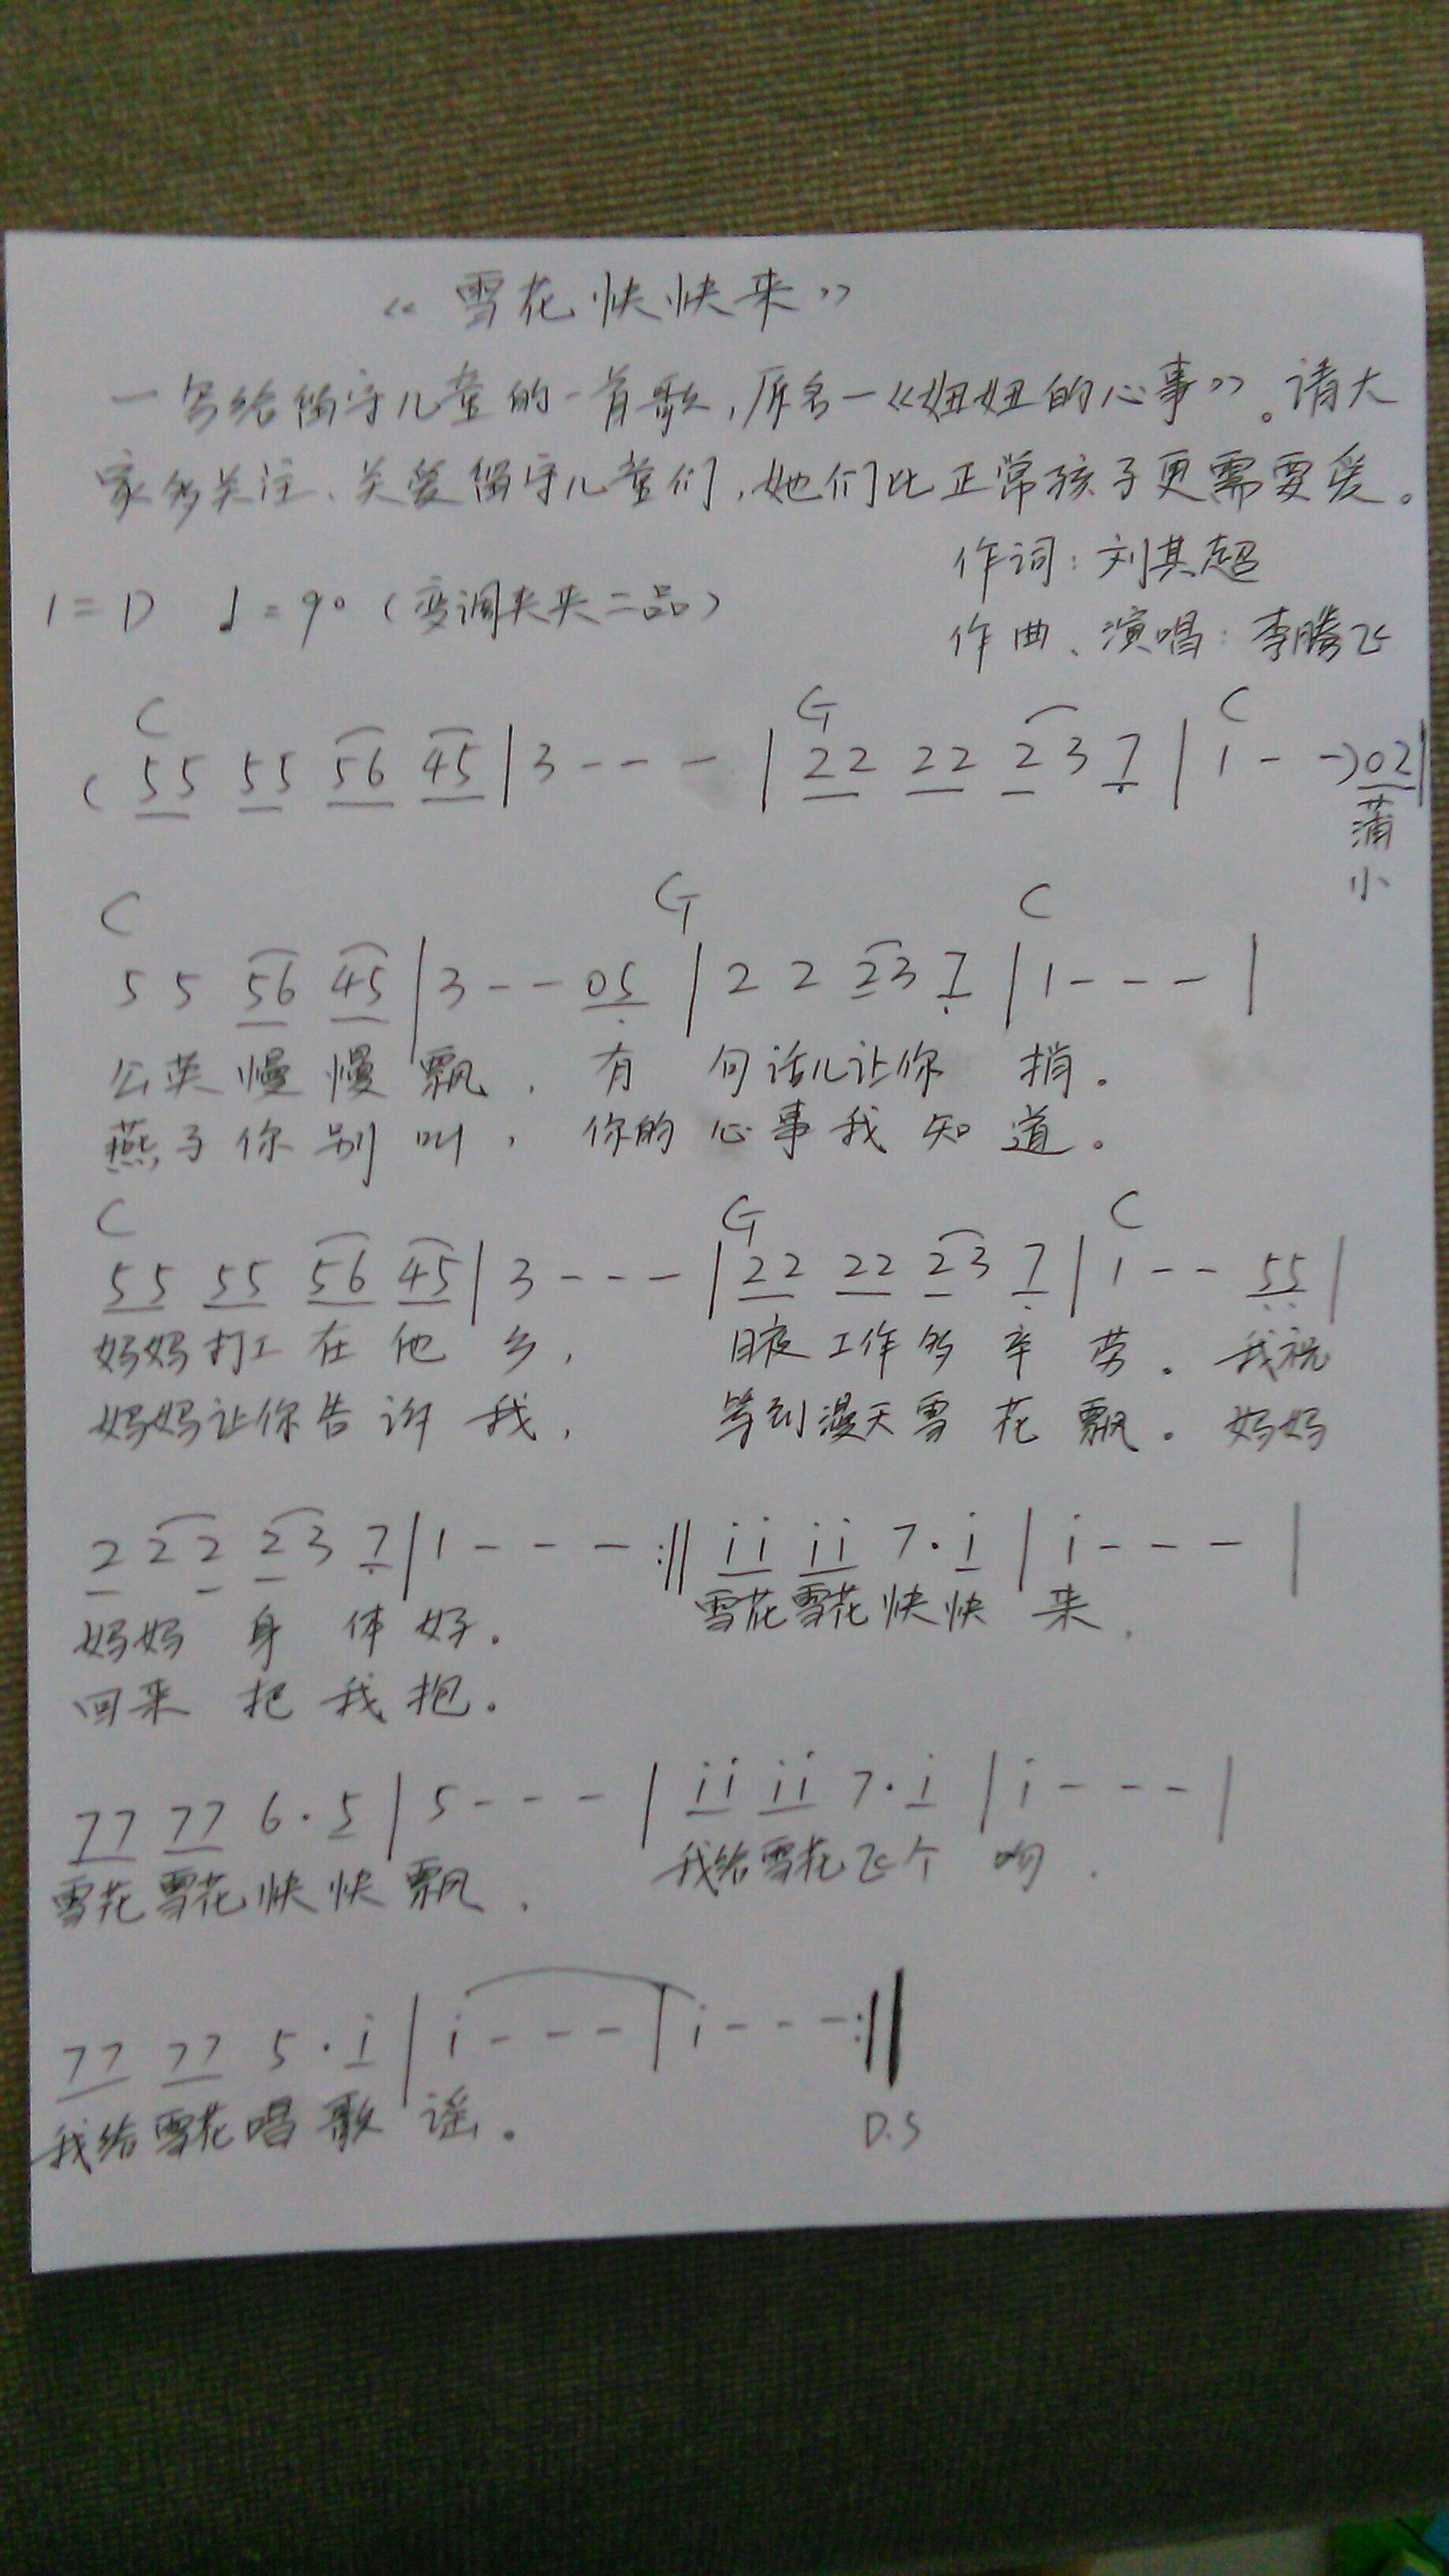 《雪花快快来》
一写给留守儿童的一首歌,原名一《妞妞的心事》。请大
家多关注、关爱留守儿童们,她们比正常孩子更需要爱。
作词:刘其超
1=D ♩=90(变调夹夹二品)
作曲、演唱:李腾飞
C G C
(55 55 56 45|3---|22 22 2 3 7|1--)02|
蒲
小
C G C
5 5 56 45|3--05|2 2 23 7|1---|
公英慢慢飘,有句话儿让你捎。
燕子你别叫,你的心事我知道。
C G C
55 55 56 45|3---|22 22 23 7|1--55|
妈妈打工在他乡,日夜工作多辛劳。我祝
妈妈让你告诉我,等到漫天雪花飘。妈妈
2 2 2 2 3 7|1---:‖ii ii 7·i|i---|
妈妈身体好。雪花雪花快快来,
回来把我抱。
77 77 6·5|5---|ii ii 7·i|i---|
雪花雪花快快飘,我给雪花飞个吻,
77 77 5·i|i---|i---:‖
我给雪花唱歌谣。
D.S